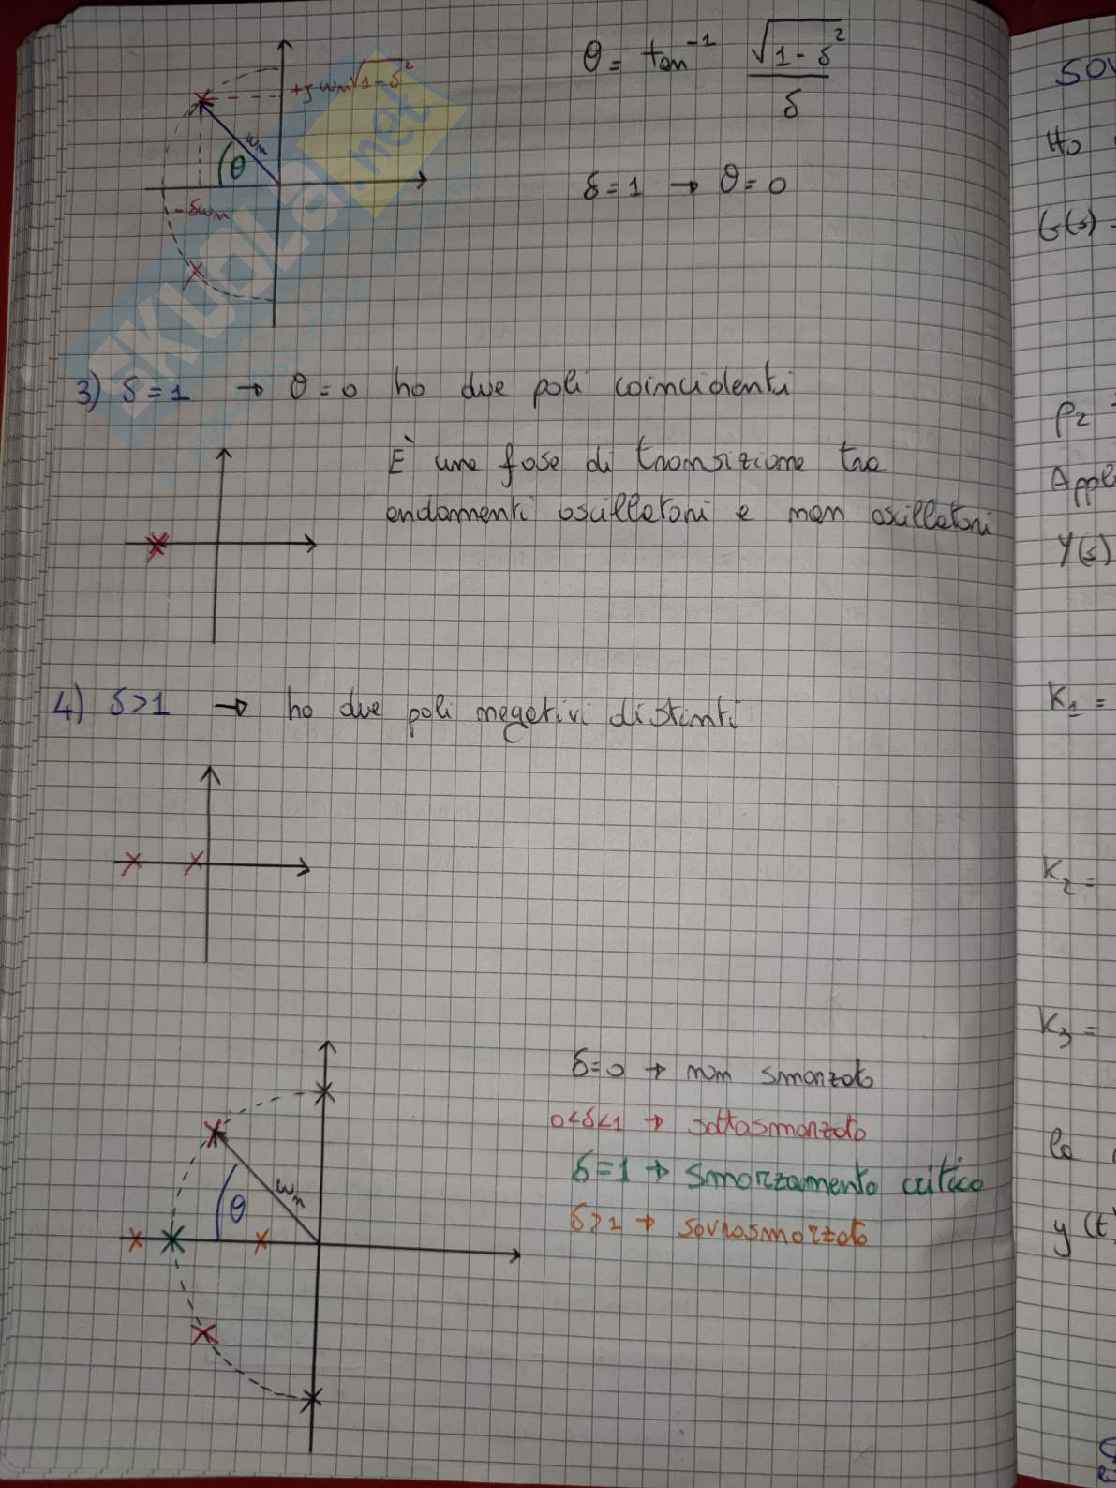 θ = tan⁻¹ √(1-δ²)/δ
+jωn√(1-δ²)
ωn
θ
-δωn
δ=1 → θ=0
SKUOLA.net
3) δ=1 → θ=0 ho due poli coincidenti
È una fase di transizione tra
andamenti oscillatori e non oscillatori
4) δ>1 → ho due poli negativi distinti
δ=0 → non smorzato
0<δ<1 → sottosmorzato
δ=1 → Smorzamento critico
δ>1 → sovrasmorzato
ωn
θ
SOV
Ho
G(s)
P2
Appli
Y(s)
K1 =
K2 =
K3 =
y(t)